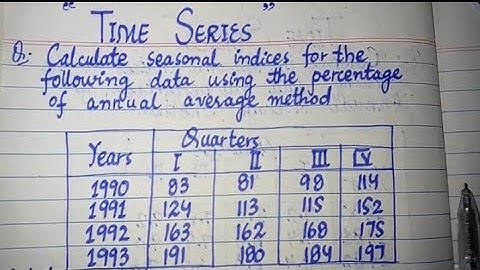 "TIME SERIES"
Q. Calculate seasonal indices for the
following data using the percentage
of annual average method
Years Quarters
I II III IV
1990 83 81 98 114
1991 124 113 115 152
1992 163 162 168 175
1993 191 180 184 197